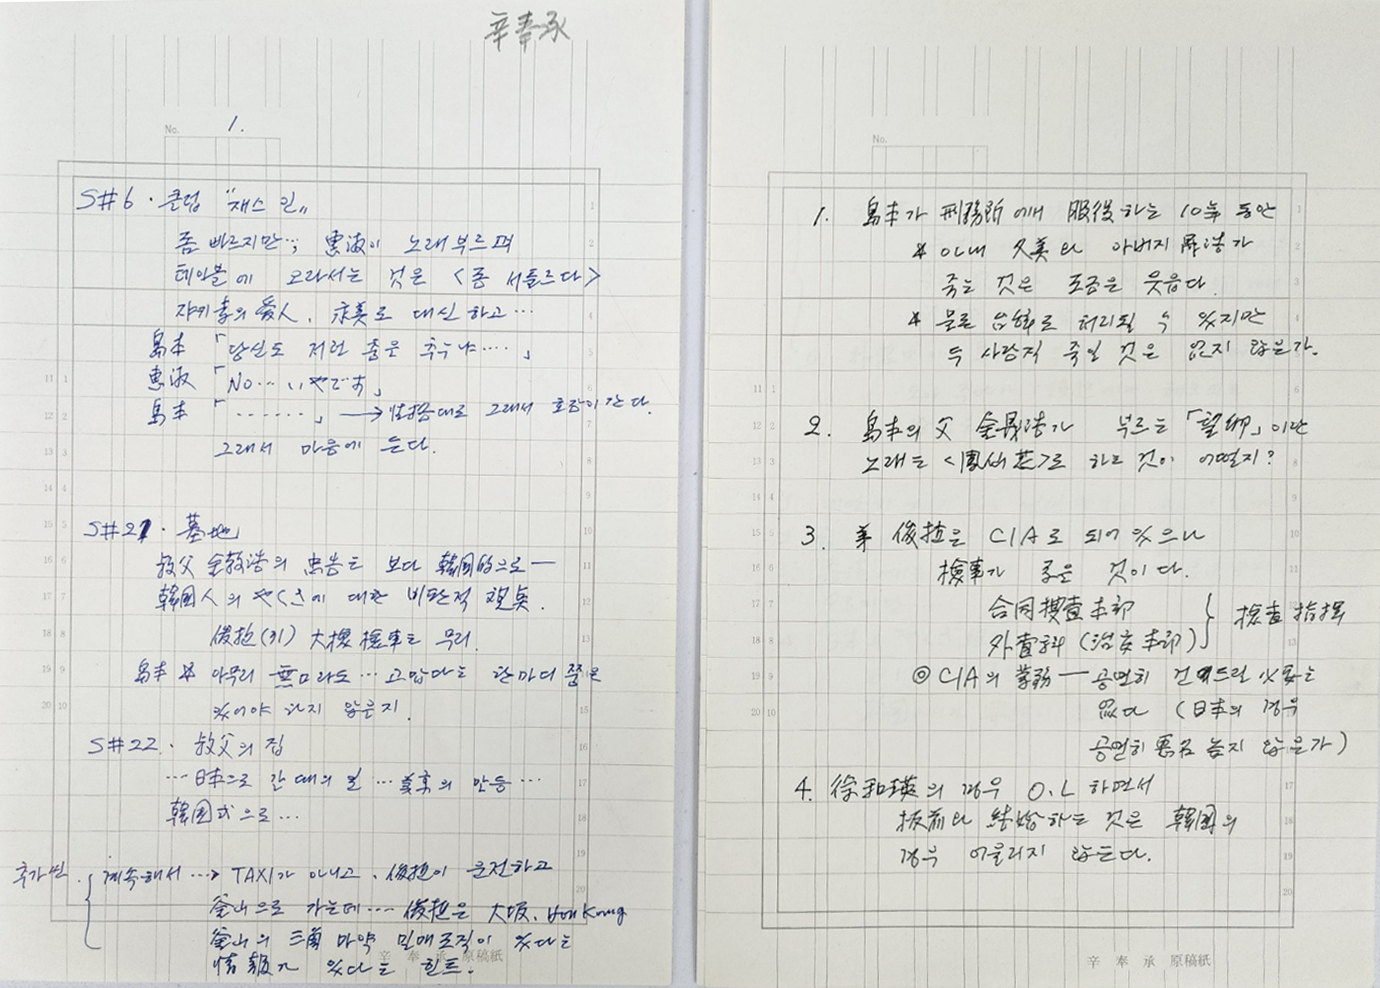 辛奉承
No. 1.
S#6 · 클럽 "재스민"
좀 빠르지만··; 惠淑이 노래부르며
테이블에 올라서는 것은 <좀 서툴르다>
쟈키 李의 愛人, 求美로 대신하고…
島本 「당신도 저런 춤은 추누냐····」
惠淑 「NO··· いやです」
島本 「·······」 → 性格대로 그래서 호감이 간다.
그래서 마음에 든다.
S#21 · 墓地
叔父 金敎浩의 忠告는 보다 韓国的으로—
韓国人의 やくざ에 대한 비판적 観点.
俊植(の) 大検検事는 무리
島本 ※ 아무리 無口라도… 고맙다는 한마디쯤은
있어야 하지 않은지.
S#22 · 叔父의 집
… 日本으로 간 때의 일 … 美京의 만능 …
韓国式으로…
추가씬 계속해서 …→ TAXI가 아니고, 俊植이 운전하고
釜山으로 가는데…… 俊植은 大坂, Hon Kong
釜山의 三角 마약 밀매조직이 있다는
情報가 있다는 힌트.
辛奉承 原稿紙
No.
1. 島本가 刑務所에서 服役하는 10年 동안
※ 아내 久美와 아버지 가
죽는 것은 조금은 웃읍다.
※ 물론 台詞로 처리될 수 있지만
두 사람씩 죽일 것은 없지 않은가.
2. 島本의 父 金 浩가 부르는 「望鄕」이란
노래는 <鳳仙花>로 하는 것이 어떨지?
3. 弟 俊植은 CIA로 되어 있으나
検事가 좋은 것이다.
合同捜査本部
外査課 (治安本部) } 検査 指揮
◎ CIA의 業務 — 공연히 건드릴 必要는
없다 (日本의 경우
공연히 悪名 높지 않은가)
4. 徐和瑛의 경우 O.L 하면서
板前와 結婚하는 것은 韓国의
경우 어울리지 않는다.
辛奉承 原稿紙